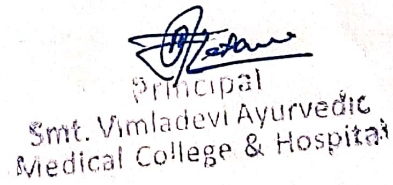 Principal
Smt. Vimladevi Ayurvedic
Medical College & Hospital